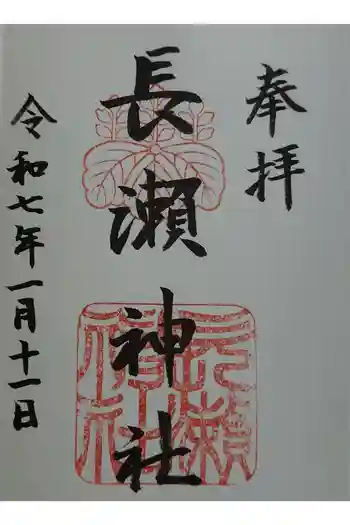 奉拝
長瀬神社
令和七年一月十一日
長瀬神社